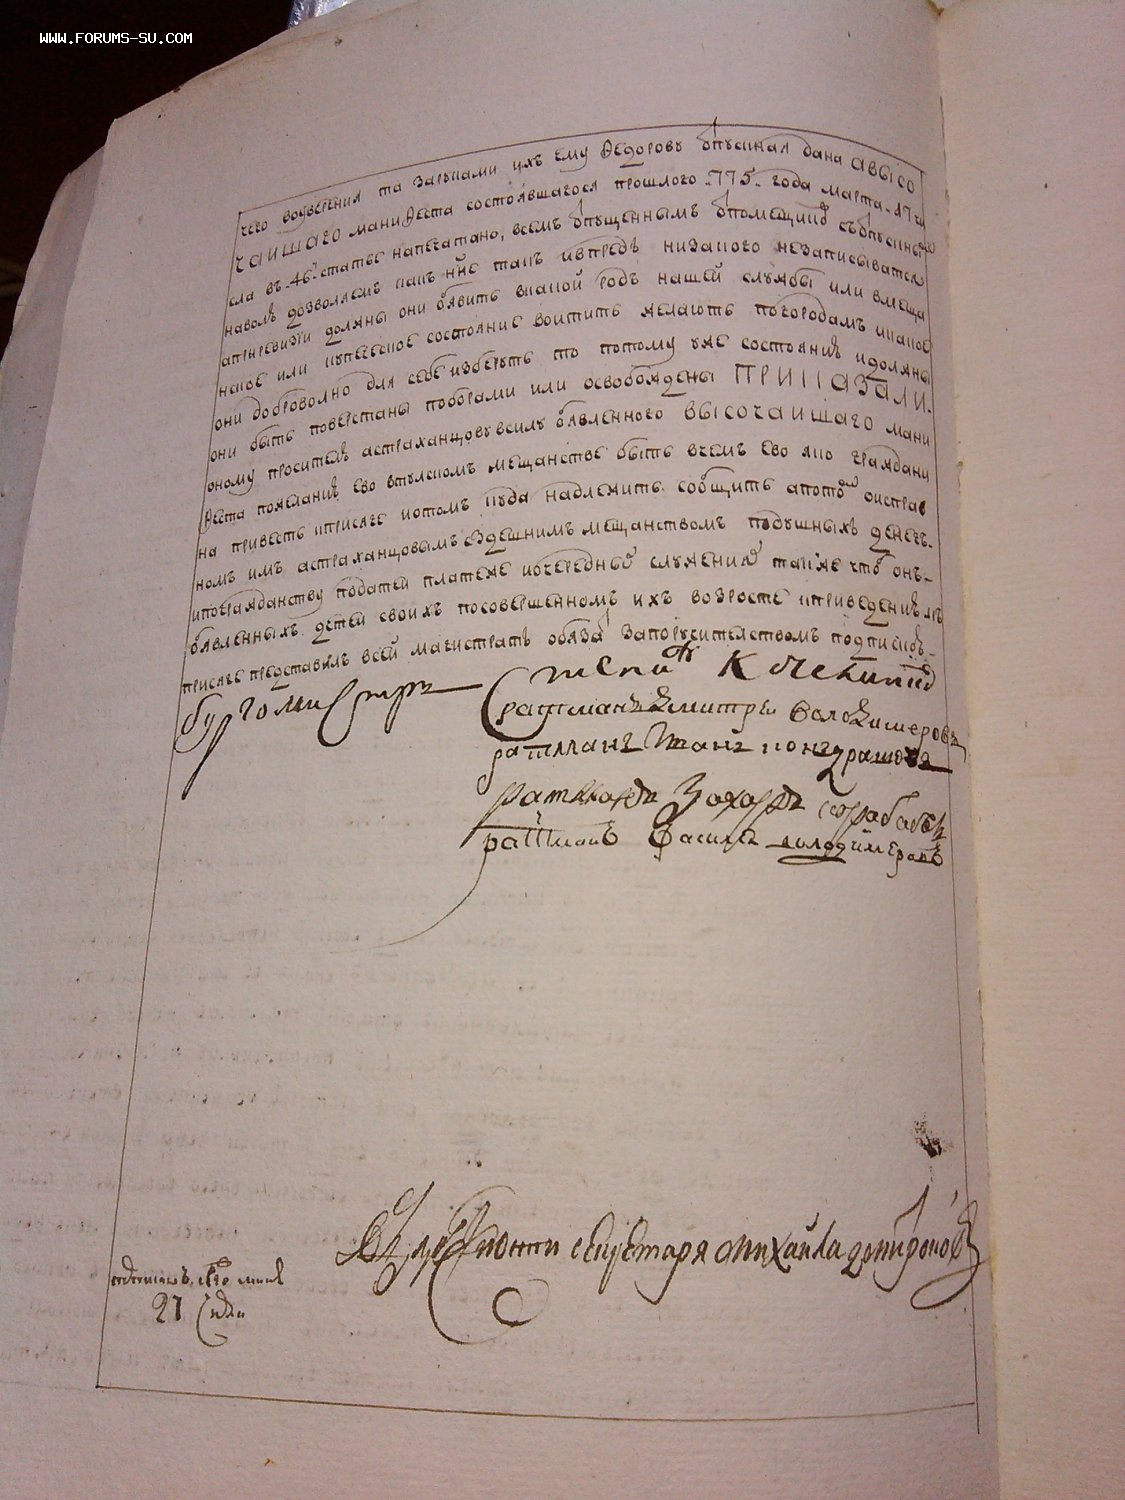 WWW.FORUMS-SU.COM
чего воуверения та зарꙋками ихъ ему Ѳедорову ѿпускная дана авысо
чаишаго маниѲеста состоявшагося прошлого 775 года марта 17 чи
сла въ 46 статье напечатано, всемъ ѿпущеннымъ ѿпомещиковъ съѿпускны
наволю дозволяемъ какъ нне такъ ивпредь низакого незаписыватся
априревизии должны они обявить вкакой родъ нашей службы или вмеща
нское или купеческое состояние воитить желаютъ погородамъ икакое
они доброволно для себе изберутъ то потому уже состоянию идолжны
они быть поверстаны поборами или освобождены ПРИКАЗАЛИ.
оному просителю астраханцову всилу обявленного высочаишаго мани
Ѳеста пожеланию ево втулскомъ мещанстве быть вчемъ ево яко граждани
на привесть кприсяге ипотомъ куда надлежитъ сообщить апотомъ оисправ
номъ имъ астраханцовымъ здешнимъ мещанствомъ подушныхъ денегъ
ипогражданству податей платеже иочередной служении также чтобъ онъ
обявленныхъ детей своихъ посовершенномъ ихъ возрасте кприведению къ
присяге представилъ всей магистратъ обязать запоручителствомъ подпискою
бургомистръ Степанъ
ратманъ Дмитреи Володимеровъ
ратманъ Иванъ кондрашовъ
ратманъ Захаръ
ратманъ Василей володимеровъ
секретаря михаила
27